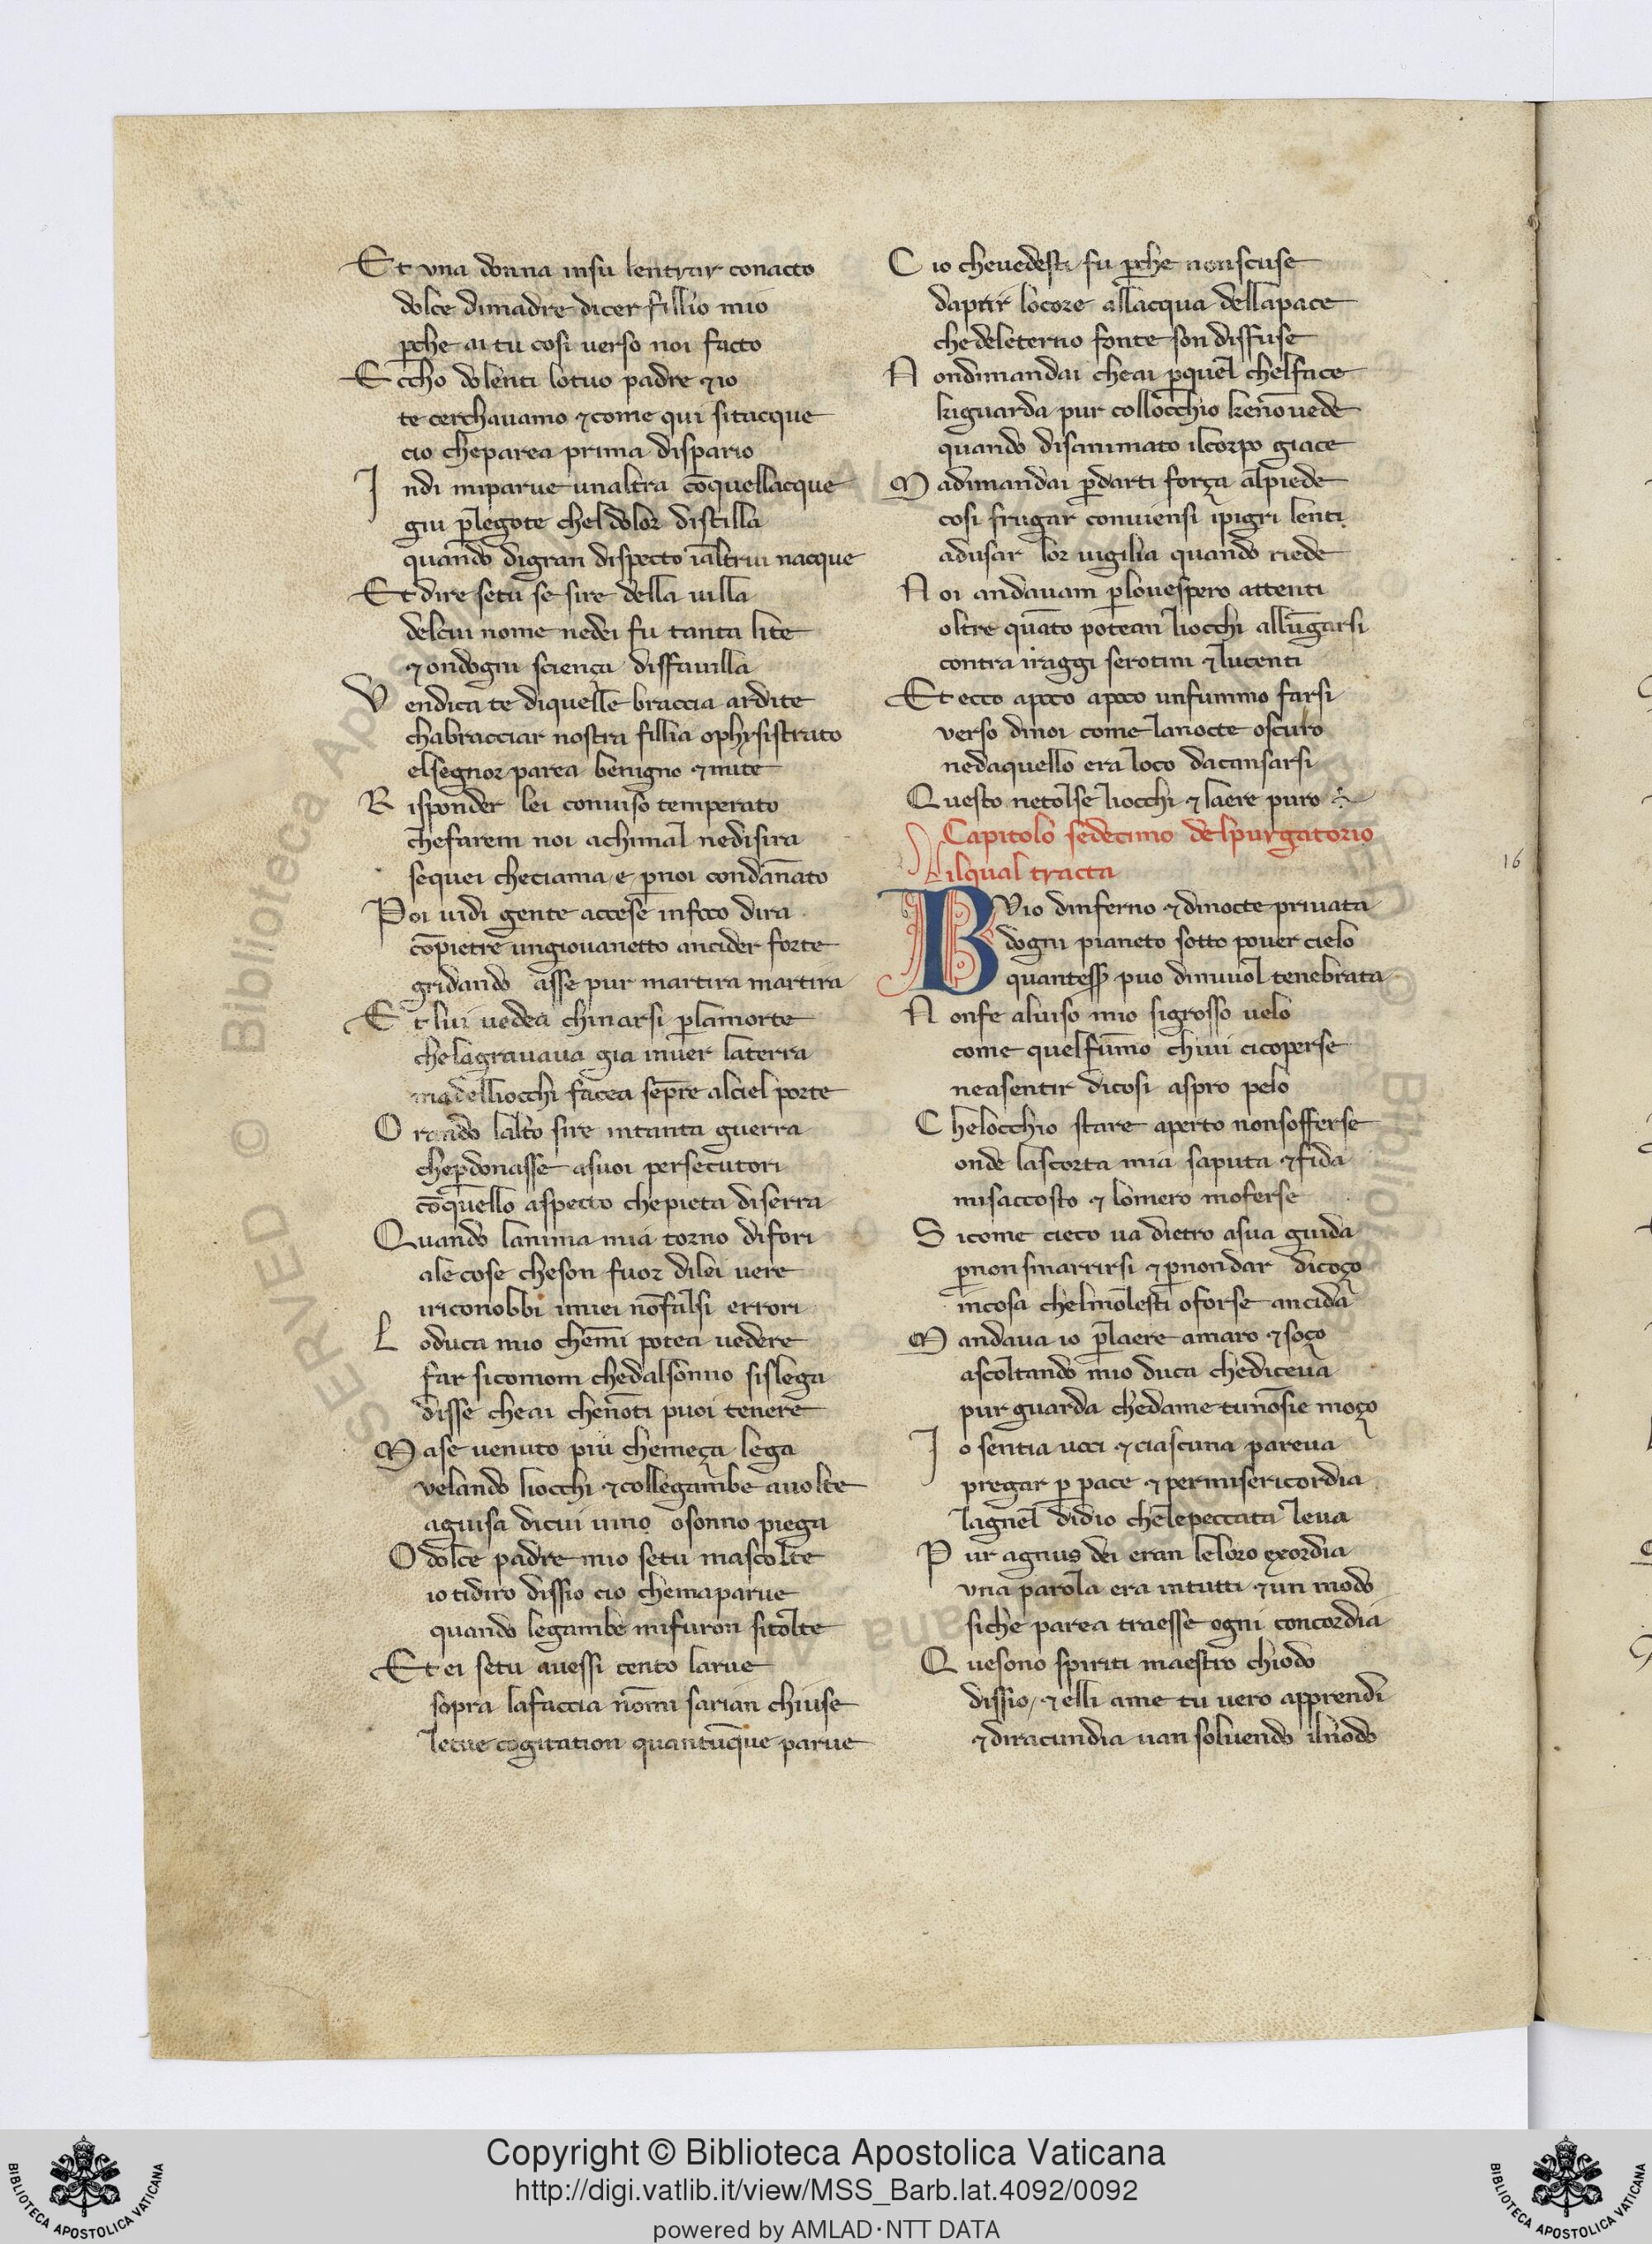 Et vna donna insu lentrar conacto
dolce dimadre dicer fillio mio
p̄che ai tu cosi uerso noi facto
Eccho dolenti lotuo padre ⁊ io
te cerchauamo ⁊ come qui sitacque
cio cheparea prima dispario
Indi miparue unaltra cōquellacque
giu p̄legote cheldolor distilla
quando digran dispecto ī altrui nacque
Et dire setu se sire della uilla
delcui nome nedei fu tanta lite
⁊ ondogni sciença disfauilla
Vendica te diquelle braccia ardite
chabracciar nostra fillia ophysistrato
elsegnor parea benigno ⁊ mite
Risponder lei conuiso temperato
chefarem noi achimal nedisira
sequei checiama e p̄noi condānato
Poi uidi gente accese infoco dira
cōpietre ungiouanetto ancider forte
gridando asse pur martira martira
Et lui uedea chinarsi p̄lamorte
chelagrauaua gia inuer laterra
madelliocchi facea sep̄re alciel porte
Orando lalto sire intanta guerra
chep̄donasse asuoi persecutori
cōquello aspecto chepieta diserra
Quando lanima mia torno difori
ale cose cheson fuor dilei uere
iriconobbi imiei nōfalsi errori
Loduca mio chemī potea uedere
far sicomom chedalsonno sislega
disse cheai chenōti puoi tenere
Mase uenuto piu chemeça lega
velando liocchi ⁊ collegambe auolte
aguisa dicui uino osonno piega
O dolce padre mio setu mascolte
io tidiro dissio cio chemaparue
quando legambe mifuron sitolte
Et ei setu auessi cento larue
sopra lafaccia nōmi sarian chiuse
letue cogitation quantūque parue
Cio cheuedesti fu p̄che nonscuse
daprir locore allacqua dellapace
chedeleterno fonte son diffuse
Nondimandai cheai p̄quel chelface
kiguarda pur collocchio kenōuede
quando disanimato ilcorpo giace
Madimandai p̄darti força alpiede
cosi frugar conuiensi ipigri lenti
adusar lor uigilia quando riede
Noi andauam p̄louespero attenti
oltre quāto potean liocchi allūgarsi
contra iraggi serotini ⁊ lucenti
Et ecco apoco apoco unfummo farsi
verso dinoi come lanocte oscuro
nedaquello era loco dacansarsi
Questo netolse liocchi ⁊ laere puro
Capitolo sedecimo delpurgatorio
ilqual tracta
16
BVio dinferno ⁊ dinocte priuata
dogni pianeto sotto pouer cielo
quantess̄ puo dinuuol tenebrata
Nonfe aluiso mio sigrosso uelo
come quelfūmo chiui cicoperse
neasentir dicosi aspro pelo
Chelocchio stare aperto nonsofferse
onde lascorta mia saputa ⁊ fida
misaccosto ⁊ lomero moferse
Sicome cieco ua dietro asua guida
p̄nonsmarrirsi ⁊ p̄nondar dicoço
incosa chelmolesti oforse ancida
Mandaua io p̄laere amaro ⁊ soço
ascoltando mio duca chediceua
pur guarda chedame tunōsie moço
Io sentia uoci ⁊ ciascuna pareua
pregar p̄ pace ⁊ permisericordia
lagnel didio chelepeccata leua
Pur agnus dei eran leloro exordia
vna parola era intutti ⁊ un modo
siche parea traesse ogni concordia
Quesono spiriti maestro chiodo
dissio / ⁊ elli ame tu uero apprendi
⁊ diracundia uan soluendo ilnodo
Copyright © Biblioteca Apostolica Vaticana
http://digi.vatlib.it/view/MSS_Barb.lat.4092/0092
powered by AMLAD·NTT DATA
BIBLIOTECA APOSTOLICA VATICANA
BIBLIOTECA APOSTOLICA VATICANA